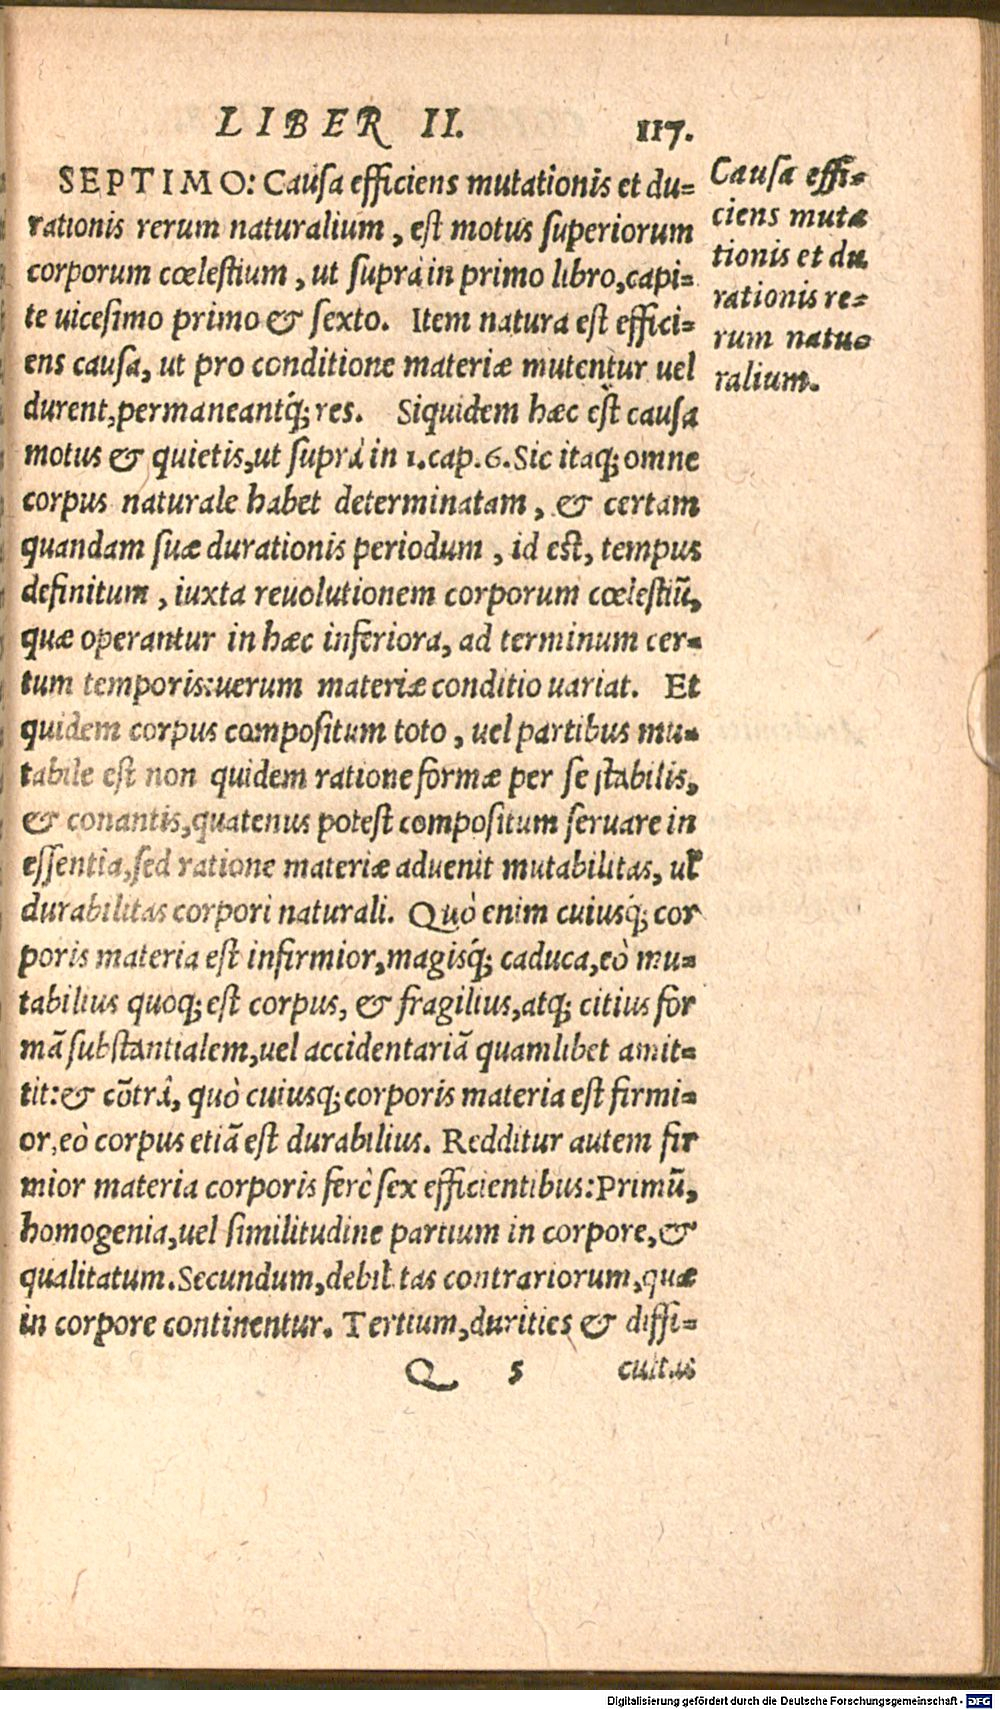 LIBER II. 117.
SEPTIMO: Causa efficiens mutationis et du=
rationis rerum naturalium, est motus superiorum
corporum cœlestium, ut suprà in primo libro, capi=
te uicesimo primo & sexto. Item natura est effici=
ens causa, ut pro conditione materiæ mutentur uel
durent, permaneantq́; res. Siquidem hæc est causa
motus & quietis, ut suprà in 1. cap. 6. Sic itaq; omne
corpus naturale habet determinatam, & certam
quandam suæ durationis periodum, id est, tempus
definitum, iuxta reuolutionem corporum cœlestiũ,
quæ operantur in hæc inferiora, ad terminum cer=
tum temporis: uerum materiæ conditio uariat. Et
quidem corpus compositum toto, uel partibus mu=
tabile est non quidem ratione formæ per se stabilis,
& conantis, quatenus potest compositum seruare in
essentia, sed ratione materiæ aduenit mutabilitas, ul̃
durabilitas corpori naturali. Quò enim cuiusq́; cor
poris materia est infirmior, magisq́; caduca, eò mu=
tabilius quoq; est corpus, & fragilius, atq; citius for
mã substantialem, uel accidentariã quamlibet amit=
tit: & cõtrà, quò cuiusq; corporis materia est firmi=
or, eò corpus etiã est durabilius. Redditur autem fir
mior materia corporis ferè sex efficientibus: Primũ,
homogenia, uel similitudine partium in corpore, &
qualitatum. Secundum, debilitas contrariorum, quæ
in corpore continentur. Tertium, durities & diffi=
Q 5 cultas
Causa effi=
ciens muta
tionis et du
rationis re=
rum natu=
ralium.
Digitalisierung gefördert durch die Deutsche Forschungsgemeinschaft - DFG